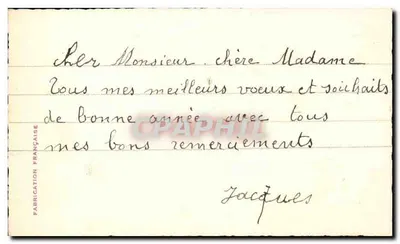 Cher Monsieur. chère Madame
Tous mes meilleurs voeux et souhaits
de bonne année avec tous
mes bons remerciements
Jacques
FABRICATION FRANÇAISE
CPAPHIL